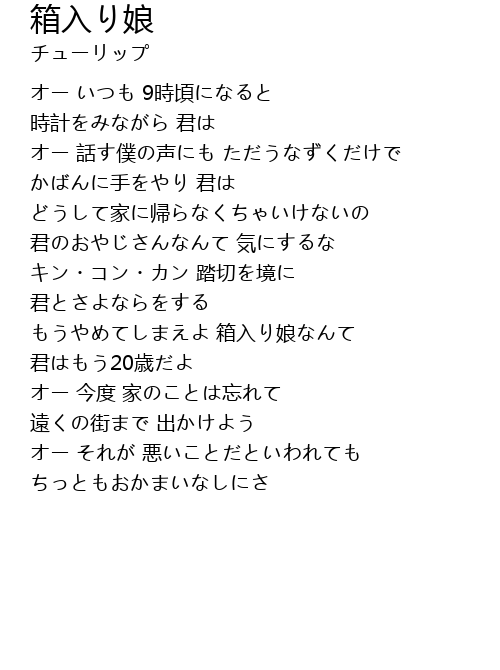 箱入り娘
チューリップ
オー いつも 9時頃になると
時計をみながら 君は
オー 話す僕の声にも ただうなずくだけで
かばんに手をやり 君は
どうして家に帰らなくちゃいけないの
君のおやじさんなんて 気にするな
キン・コン・カン 踏切を境に
君とさよならをする
もうやめてしまえよ 箱入り娘なんて
君はもう20歳だよ
オー 今度 家のことは忘れて
遠くの街まで 出かけよう
オー それが 悪いことだといわれても
ちっともおかまいなしにさ